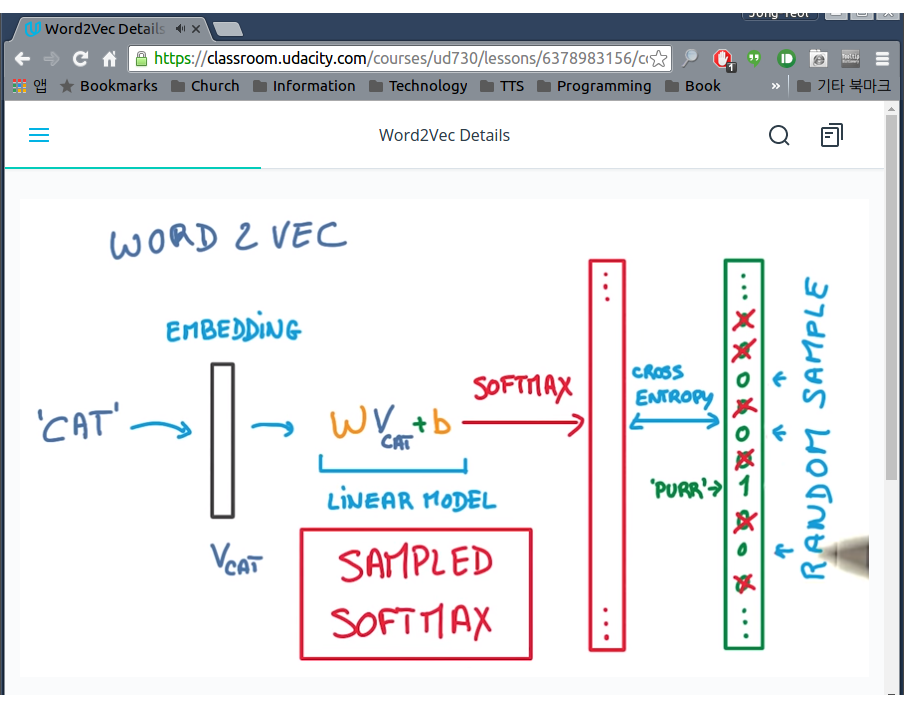 Word2Vec Details
https://classroom.udacity.com/courses/ud730/lessons/6378983156/c
1
앱
Bookmarks
Church
Information
Technology
TTS
Programming
Book
»
기타 북마크
Word2Vec Details
WORD 2 VEC
EMBEDDING
'CAT'
W V CAT + b
LINEAR MODEL
V CAT
SAMPLED
SOFTMAX
SOFTMAX
CROSS
ENTROPY
'PURR'
0
0
0
0
0
0
1
0
0
0
RANDOM SAMPLE